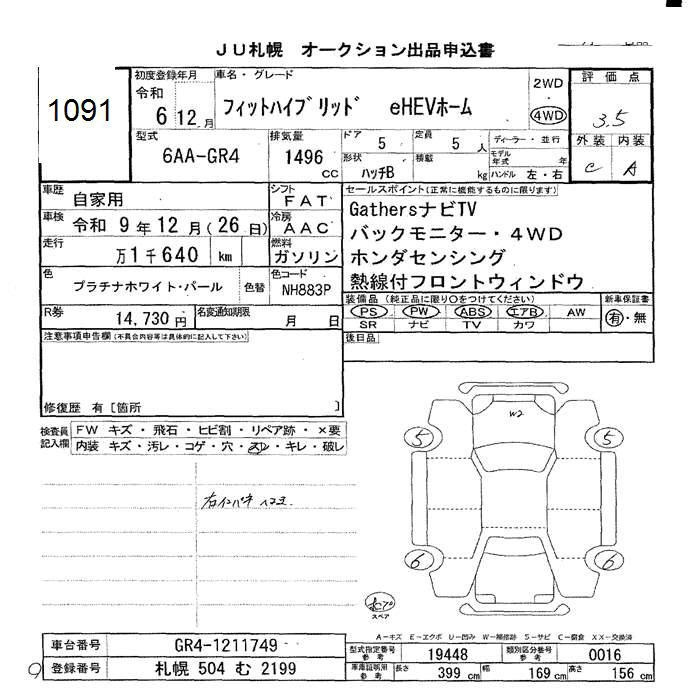 JU札幌 オークション出品申込書
1091
初度登録年月 車名・グレード 2WD 評価点
令和 6 12 月 フィットハイブリッド eHEVホーム 4WD 3.5
型式 排気量 ドア 5 定員 5 人 ディーラー・並行 外装 内装
6AA-GR4 1496 cc 形状 ハッチB 積載 kg モデル年式 年 ハンドル 左・右 C A
車歴 自家用 シフト FAT セールスポイント(正常に機能するものに限ります)
車検 令和 9 年 12 月 (26 日) 冷房 AAC GathersナビTV
走行 万1千640 km 燃料 ガソリン バックモニター・4WD
ホンダセンシング
色 プラチナホワイト・パール 色替 色コード NH883P 熱線付フロントウィンドウ
装備品(純正品に限り○をつけてください) 新車保証書
R券 14,730 円 名変通知期限 月 日 PS PW ABS エアB AW 有・無
SR ナビ TV カワ
注意事項申告欄(不具合内容等は具体的に記入して下さい) 後日品
修復歴 有 [箇所 ]
検査員記入欄 FW キズ・飛石・ヒビ割・リペア跡・×要
内装 キズ・汚レ・コゲ・穴・スレ・キレ・破レ
W2
5 5
右インパネ ヘコミ
6 6
スペア
A-キズ E-エクボ U-凹み W-補修跡 S-サビ C-腐食 XX-交換済
車台番号 GR4-1211749 型式指定番号 参考 19448 類別区分番号 参考 0016
9 登録番号 札幌 504 む 2199 車庫証明用 参考 長さ 399 cm 幅 169 cm 高さ 156 cm